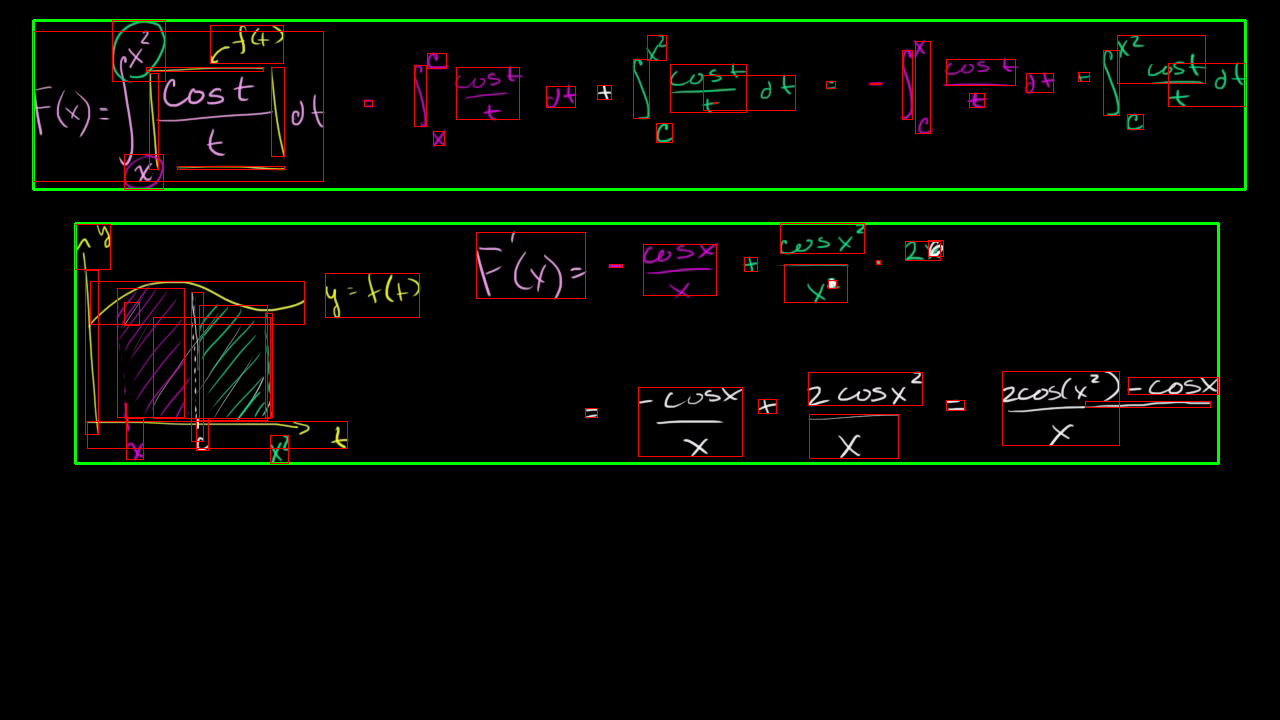 F(x) = ∫_x^{x²} cos t / t dt = ∫_x^c cos t / t dt + ∫_c^{x²} cos t / t dt = - ∫_c^x cos t / t dt + ∫_c^{x²} cos t / t dt
f(t)
y
y = f(t)
x
c
x²
t
F'(x) = - cos x / x + cos x² / x² · 2x
= -cos x / x + 2 cos x² / x = 2cos(x²) - cos x / x